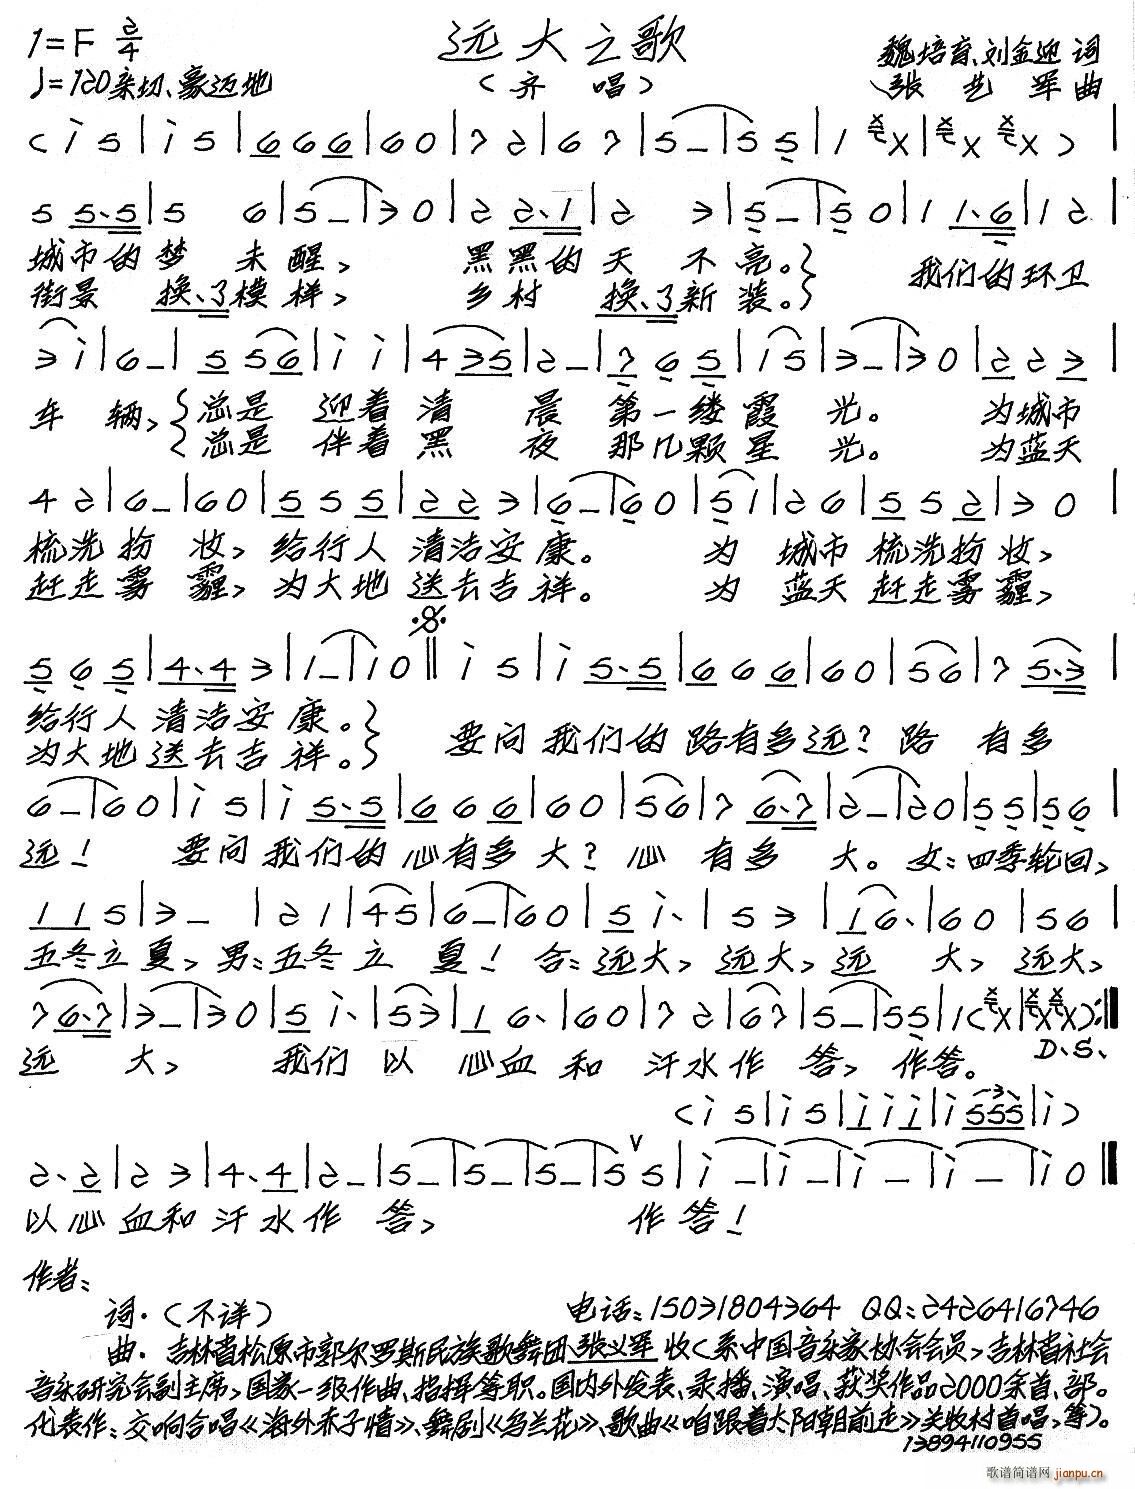 1=F 2/4
远大之歌
魏培育、刘金迎 词
♩=120 亲切、豪迈地
（齐 唱）
张艺军 曲
城市的梦 未醒， 黑黑的天 不亮。 我们的环卫
街景 换了模样， 乡村 换了新装。
车辆， 总是 迎着清 晨 第一缕霞 光。 为城市
总是 伴着黑 夜 那几颗星 光。 为蓝天
梳洗扮 妆， 给行人 清洁安 康。 为 城市 梳洗扮妆，
赶走雾 霾， 为大地 送去吉 祥。 为 蓝天 赶走雾霾，
给行人 清洁安 康。
为大地 送去吉 祥。 要问我们的路有多远？路 有多
远！ 要问我们的心有多大？心 有多 大。 女：四季轮回，
五冬立夏， 男：五冬立 夏！ 合：远大， 远大， 远 大， 远大，
远 大， 我们 以 心血 和 汗水作 答， 作答。
D.S.
以心血和汗水作 答， 作答！
作者：
词．（不详） 电话：15031804364 QQ：2426416746
曲．吉林省松原市郭尔罗斯民族歌舞团张义军 收（系中国音乐家协会会员，吉林省社会
音乐研究会副主席，国家一级作曲、指挥等职。国内外发表、录播、演唱、获奖作品2000余首、部。
代表作：交响合唱《海外赤子情》、舞剧《乌兰花》、歌曲《咱跟着太阳朝前走》关牧村首唱，等）。
13894110955
歌谱简谱网 jianpu.cn